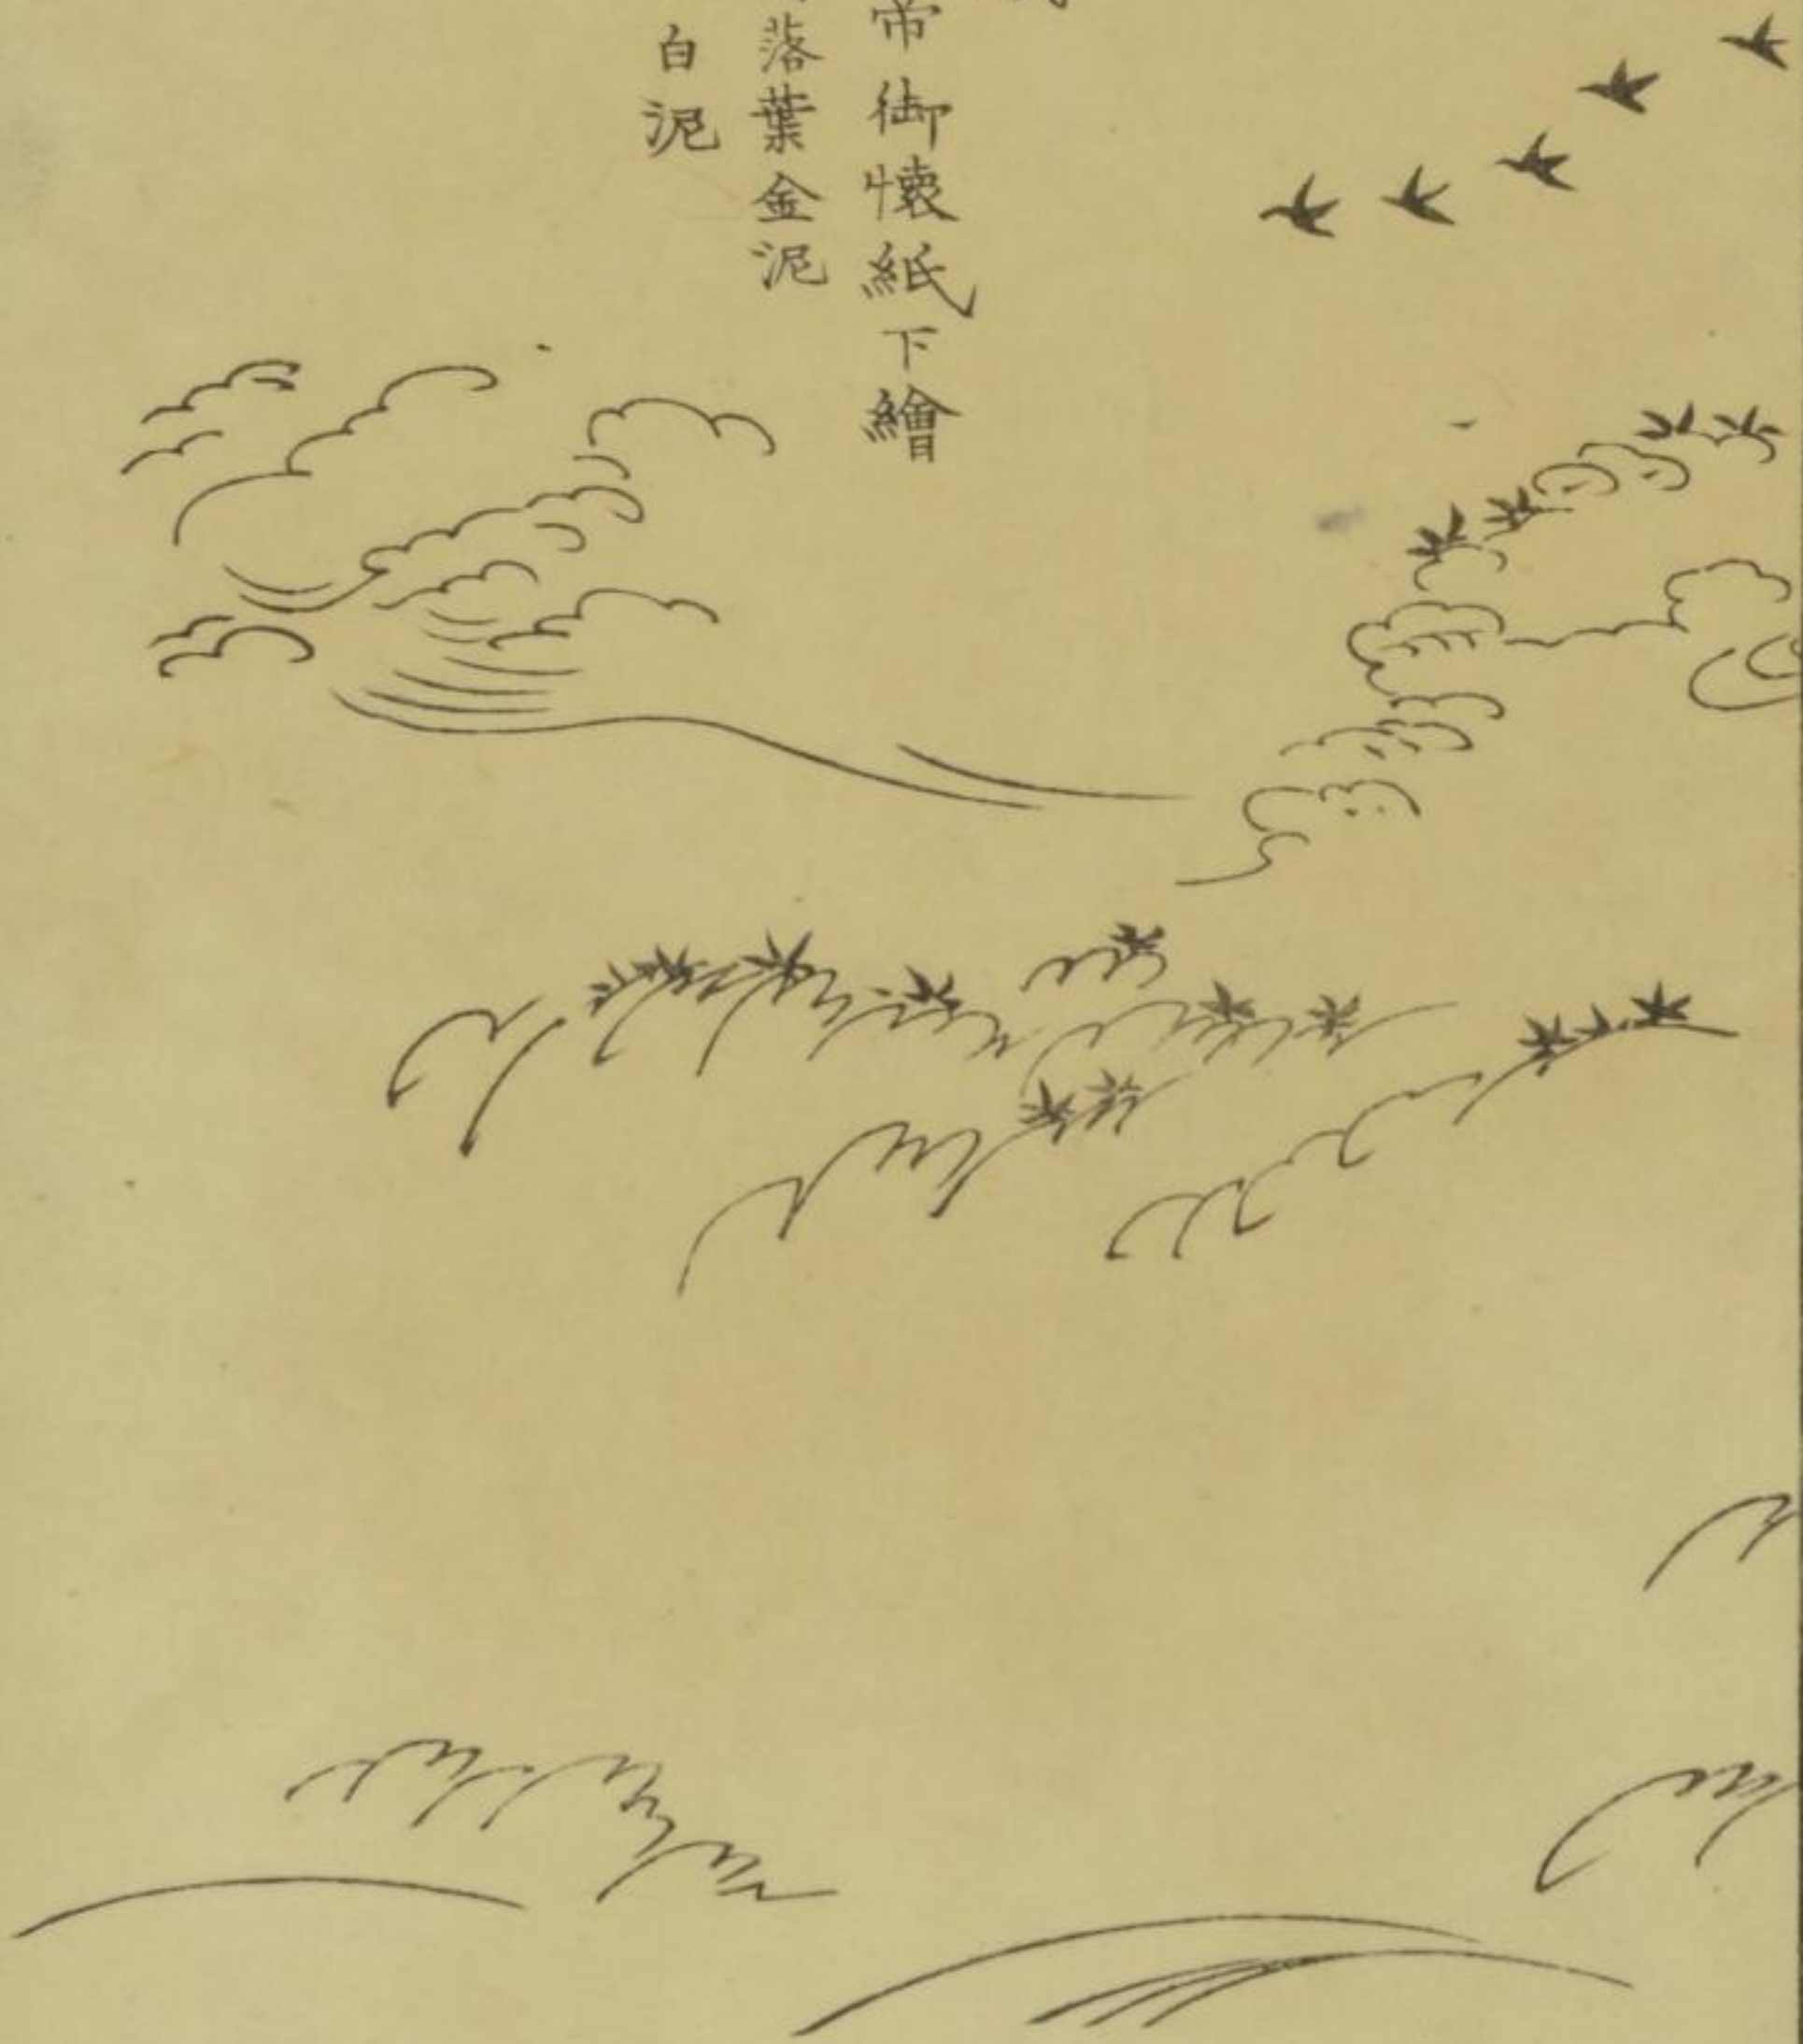 帝御懐紙下繪
落葉金泥
白泥